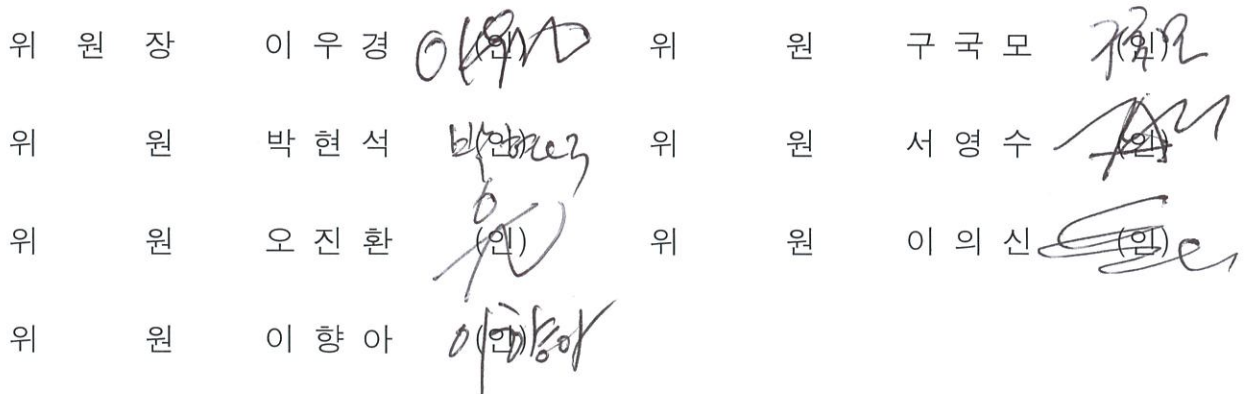 위 원 장 이 우 경 (인) 위 원 구 국 모 (인)
위 원 박 현 석 (인) 위 원 서 영 수 (인)
위 원 오 진 환 (인) 위 원 이 의 신 (인)
위 원 이 향 아 (인) 이향아